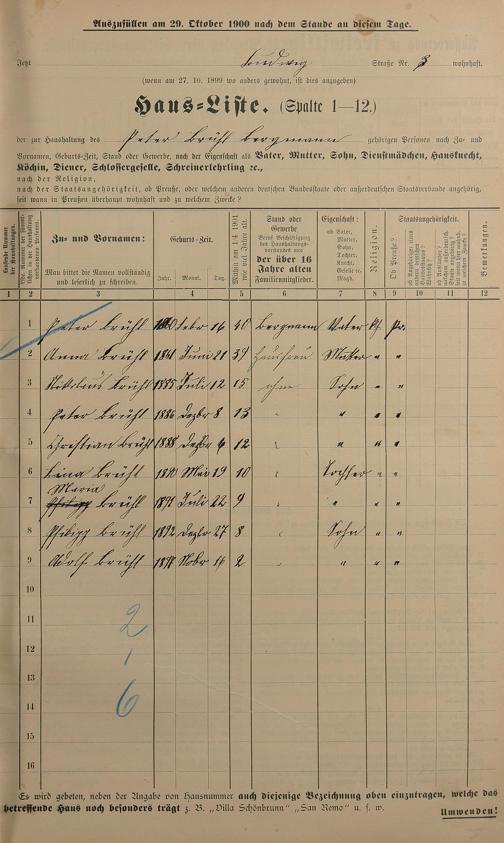 Auszufüllen am 29. Oktober 1900 nach dem Stande an diesem Tage.
Jetzt Ludweg Straße Nr. 3 wohnhaft.
(wenn am 27. 10. 1899 wo anders gewohnt, ist dies anzugeben)
Haus-Liste. (Spalte 1—12.)
der zur Haushaltung des Peter Brühl Bergmann gehörigen Personen nach Zu- und
Vornamen, Geburts-Zeit, Stand oder Gewerbe, nach der Eigenschaft als Vater, Mutter, Sohn, Dienstmädchen, Hausknecht,
Köchin, Diener, Schlossergeselle, Schreinerlehrling ꝛc.,
nach der Religion,
nach der Staatsangehörigkeit, ob Preuße, oder welchem anderen deutschen Bundesstaate oder außerdeutschen Staatsverbande angehörig,
seit wann in Preußen überhaupt wohnhaft und zu welchem Zwecke?
Zu- und Vornamen:
Man bittet die Namen vollständig
und leserlich zu schreiben.
Geburts-Zeit.
Jahr. Monat. Tag.
Mithin am 1/4 1901
wie viel Jahre alt.
Stand oder
Gewerbe
der über 16
Jahre alten
Familienmitglieder.
Eigenschaft:
ob Vater,
Mutter,
Sohn,
Tochter,
Knecht,
Geselle ꝛc.
Magd.
Religion.
Staatsangehörigkeit.
Ob Preuße?
Bemerkungen.
1 2 3 4 5 6 7 8 9 10 11 12
1 Peter Brühl Febr 16 40 Bergmann Vater kt. Pr.
2 Anna Brühl 1861 Juni 21 39 Hausfrau Mutter " "
3 Nikolaus Brühl 1885 Juli 12 15 ohne Sohn " "
4 Peter Brühl 1886 Dezbr 8 13 " " "
5 Christian Brühl 1888 Dezbr 6 12 " " "
6 Lina Brühl 1890 Mai 19 10 Tochter " "
Maria
7 Philipp Brühl 1891 Juli 22 9 " " "
8 Philipp Brühl 1892 Dezbr 27 8 Sohn " "
9 Adolf Brühl 1898 Novbr 16 2 " " "
10
11
12
13
14
15
16
2
1
6
Es wird gebeten, neben der Angabe von Hausnummer auch diejenige Bezeichnung oben einzutragen, welche das
betreffende Haus noch besonders trägt z. B. „Villa Schönbrunn" „San Remo" u. s. w.
Umwenden!